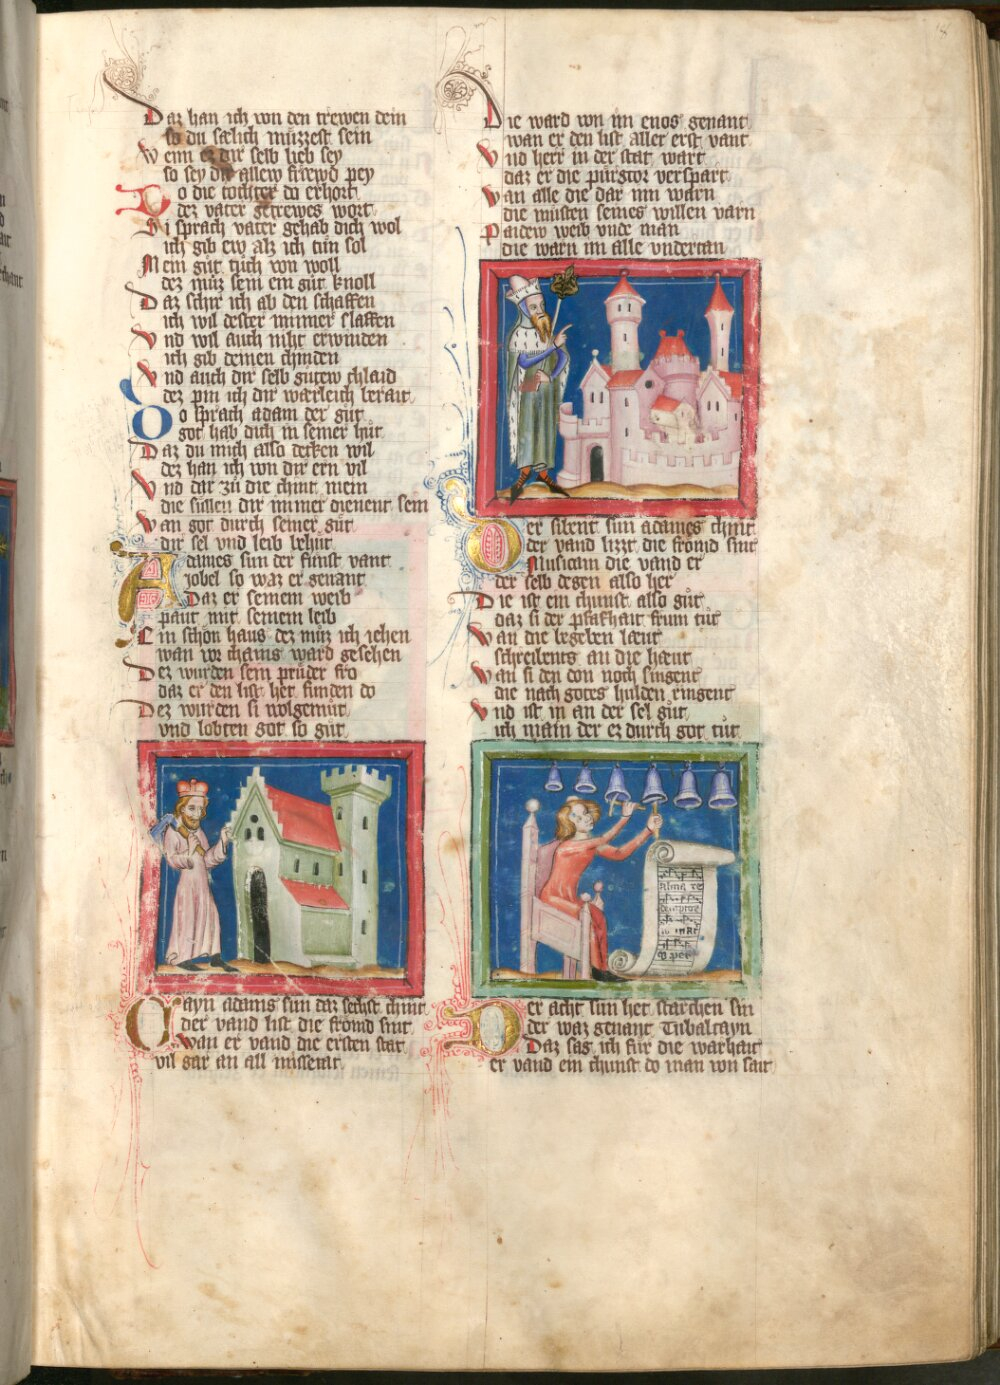 Daz han ich von den trewen dein
so du sælich müzzest sein
Wenn ez dir selb lieb sey
so sey dir allew frewd pey
Do die tochter do erhort
dez vater getrewes wort
Si sprach vater gehab dich wol
ich gib ew alz ich tün sol
Mein güt tüch von woll
dez müz sein ein güt knoll
Daz schir ich ab den schaffen
ich wil dester minner slaffen
Vnd wil auch niht erwinden
ich gib deinen chinden
Vnd auch dir selb gütew chlaid
dez pin ich dir wærleich berait
Do sprach adam der güt
got hab dich in seiner hüt
Daz du mich also decken wil
dez han ich von dir ern vil
Vnd dar zü die chint mein
die süllen dir immer dienent sein
Wan got durch seiner güt
dir sel vnd leib behüt
Adames sun der fünft vant
Jobel so waz er genant
Daz er seinem weib
paut mit seinem leib
Ein schön haus dez müz ich iehen
wan vor chains ward gesehen
Dez wurden sein prüder fro
daz er den list het funden do
Dez wurden si wolgemüt
vnd lobten got so güt
Cayn adams sun daz sechst chint
der vand list die frömd sint
Wan er vand die ersten stat
vil gar an all missetat
Die ward von im enos genant
wan er den list aller erst vant
Vnd herr in der stat wart
daz er die pürgtor verspart
Wan alle die dar inn warn
die müsten seines willen varn
Paidew weib vnde man
die warn im alle vndertan
Der sibent sun adames chint
der vand lizzt die frömd sint
Musicam die vand er
der selb degen also her
Die ist ein chunst also güt
daz si der pfafhait frum tüt
Wan die begeben læut
schreibents an die hæut
Wan si den don noch singent
die nach gotes hulden ringent
Vnd ist in an der sel güt
ich main der ez durch got tüt
alma re
demptore
Der acht sun het starchen sin
der waz genant Tubalcayn
Daz sag ich für die warhait
er vand ein chunst do man von sait